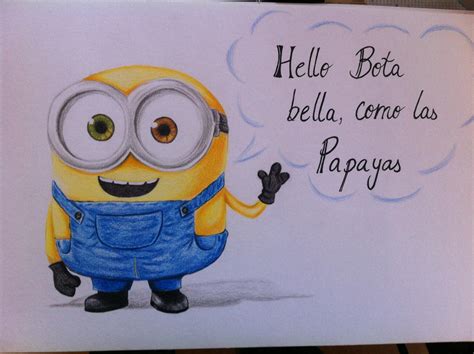 Hello Bota
bella, como las
Papayas